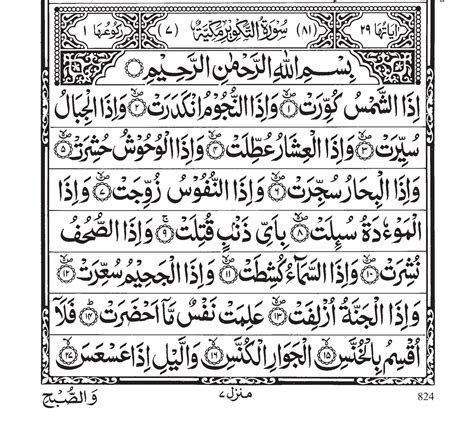 اٰیَاتُهَا ٢٩ (٨١) سُوْرَةُ التَّكْوِيْرِ مَكِّيَّةٌ (٧) رُكُوْعُهَا ١
بِسْمِ اللّٰهِ الرَّحْمٰنِ الرَّحِيْمِ
اِذَا الشَّمْسُ كُوِّرَتْ ١ وَاِذَا النُّجُوْمُ انْكَدَرَتْ ٢ وَاِذَا الْجِبَالُ
سُيِّرَتْ ٣ وَاِذَا الْعِشَارُ عُطِّلَتْ ٤ وَاِذَا الْوُحُوْشُ حُشِرَتْ ٥
وَاِذَا الْبِحَارُ سُجِّرَتْ ٦ وَاِذَا النُّفُوْسُ زُوِّجَتْ ٧ وَاِذَا
الْمَوْءٗدَةُ سُىِٕلَتْ ٨ بِاَيِّ ذَنْۢبٍ قُتِلَتْ ٩ وَاِذَا الصُّحُفُ
نُشِرَتْ ١٠ وَاِذَا السَّمَآءُ كُشِطَتْ ١١ وَاِذَا الْجَحِيْمُ سُعِّرَتْ ١٢
وَاِذَا الْجَنَّةُ اُزْلِفَتْ ١٣ عَلِمَتْ نَفْسٌ مَّاۤ اَحْضَرَتْ ١٤ فَلَاۤ
اُقْسِمُ بِالْخُنَّسِ ١٥ الْجَوَارِ الْكُنَّسِ ١٦ وَالَّيْلِ اِذَا عَسْعَسَ ١٧
وَالصُّبْحِ منزل ٧ 824